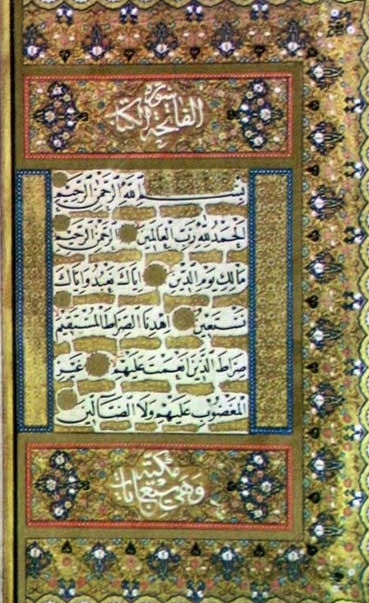 سورة
الفاتحة الكتاب
بِسْمِ اللَّهِ الرَّحْمٰنِ الرَّحِيمِ
اَلْحَمْدُ لِلَّهِ رَبِّ الْعَالَمِينَ الرَّحْمٰنِ الرَّحِيمِ
مَالِكِ يَوْمِ الدِّينِ اِيَّاكَ نَعْبُدُ وَاِيَّاكَ
نَسْتَعِينُ اِهْدِنَا الصِّرَاطَ الْمُسْتَقِيمَ
صِرَاطَ الَّذِينَ اَنْعَمْتَ عَلَيْهِمْ غَيْرِ
الْمَغْضُوبِ عَلَيْهِمْ وَلَا الضَّالِّينَ
مكية
وهي سبع ايات